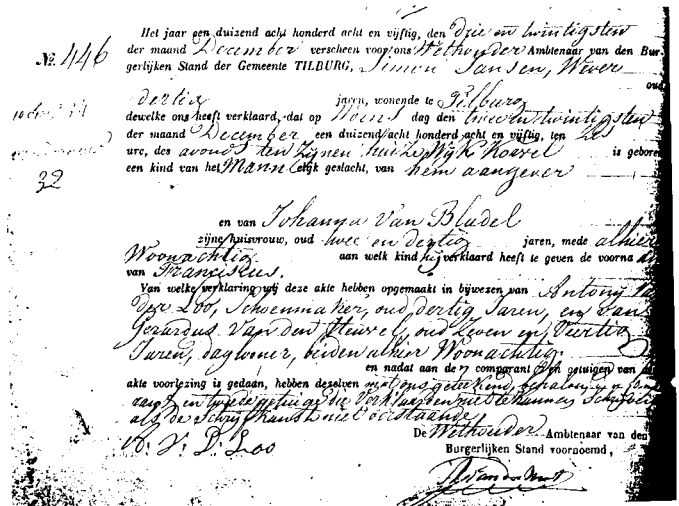 Het jaar een duizend acht honderd acht en vijftig, den drie en twintigsten
№. 446 der maand December verscheen voor ons Wethouder Ambtenaar van den Bur-
gerlijken Stand der Gemeente TILBURG, Simon Jansen, Wever
oud
dertig jaren, wonende te Tilburg
dewelke ons heeft verklaard, dat op Woens dag den twee en twintigsten
der maand December een duizend acht honderd acht en vijftig, ten zes
ure, des avonds ten zijnen huize Wijk is geboren
32
een kind van het Mannelijk geslacht, van hem aangever
en van Johanna Van Bladel
zijne huisvrouw, oud twee en dertig jaren, mede alhier
Woonachtig aan welk kind hij verklaard heeft te geven de voorna
van Franciscus.
Van welke verklaring wij deze akte hebben opgemaakt in bijwezen van Antony
der Loo, Schoenmaker, oud dertig Jaren, en van
Gerardus Van den Heuvel, oud zeven en Veertig
Jaren, dagloner, beiden alhier Woonachtig
en nadat aan de comparant en getuigen van
akte voorlezing is gedaan, hebben dezelven met ons geteekend, behalve
en tweede getuige die Verklaarden niet te kunnen Schrijven
als de Schrijfkunst niet verstaande
De Wethouder Ambtenaar van den
A: V: D: Loo
Burgerlijken Stand voornoemd,